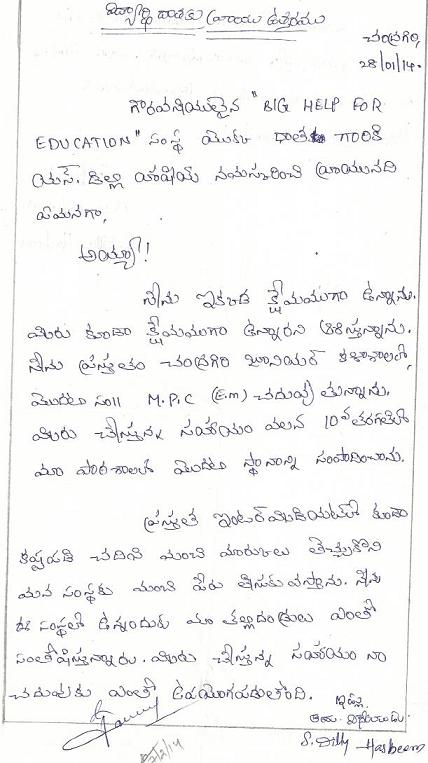 విద్యార్థి దాతకు వ్రాయు ఉత్తరము
చంద్రగిరి,
28/01/14.
గౌరవనీయులైన "BIG HELP FOR
EDUCATION" సంస్థ యొక్క దాత గారికి
యస్. ఢిల్లీ హాషిమ్ నమస్కరించి వ్రాయునది
ఏమనగా,
అయ్యా!
నేను ఇక్కడ క్షేమముగా ఉన్నాను.
మీరు కూడా క్షేమముగా ఉన్నారని ఆశిస్తున్నాను.
నేను ప్రస్తుతం చంద్రగిరి జూనియర్ కళాశాలలో,
మొదటి సం॥ M.P.C (E.m) చదువు తున్నాను.
మీరు చేస్తున్న సహాయం వలన 10వ తరగతిలో
మా పాఠశాలలో మొదటి స్థానాన్ని సంపాదించాను.
ప్రస్తుత ఇంటర్మీడియట్లో కూడా
కష్టపడి చదివి మంచి మార్కులు తెచ్చుకొని
మన సంస్థకు మంచి పేరు తీసుకు వస్తాను. నేను
ఈ సంస్థలో ఉన్నందుకు మా తల్లిదండ్రులు ఎంతో
సంతోషిస్తున్నారు. మీరు చేస్తున్న సహాయం నా
చదువుకు ఎంతో ఉపయోగపడుతోంది.
ఇట్లు
తమ విధేయుడు
S. Dilly Hasheem